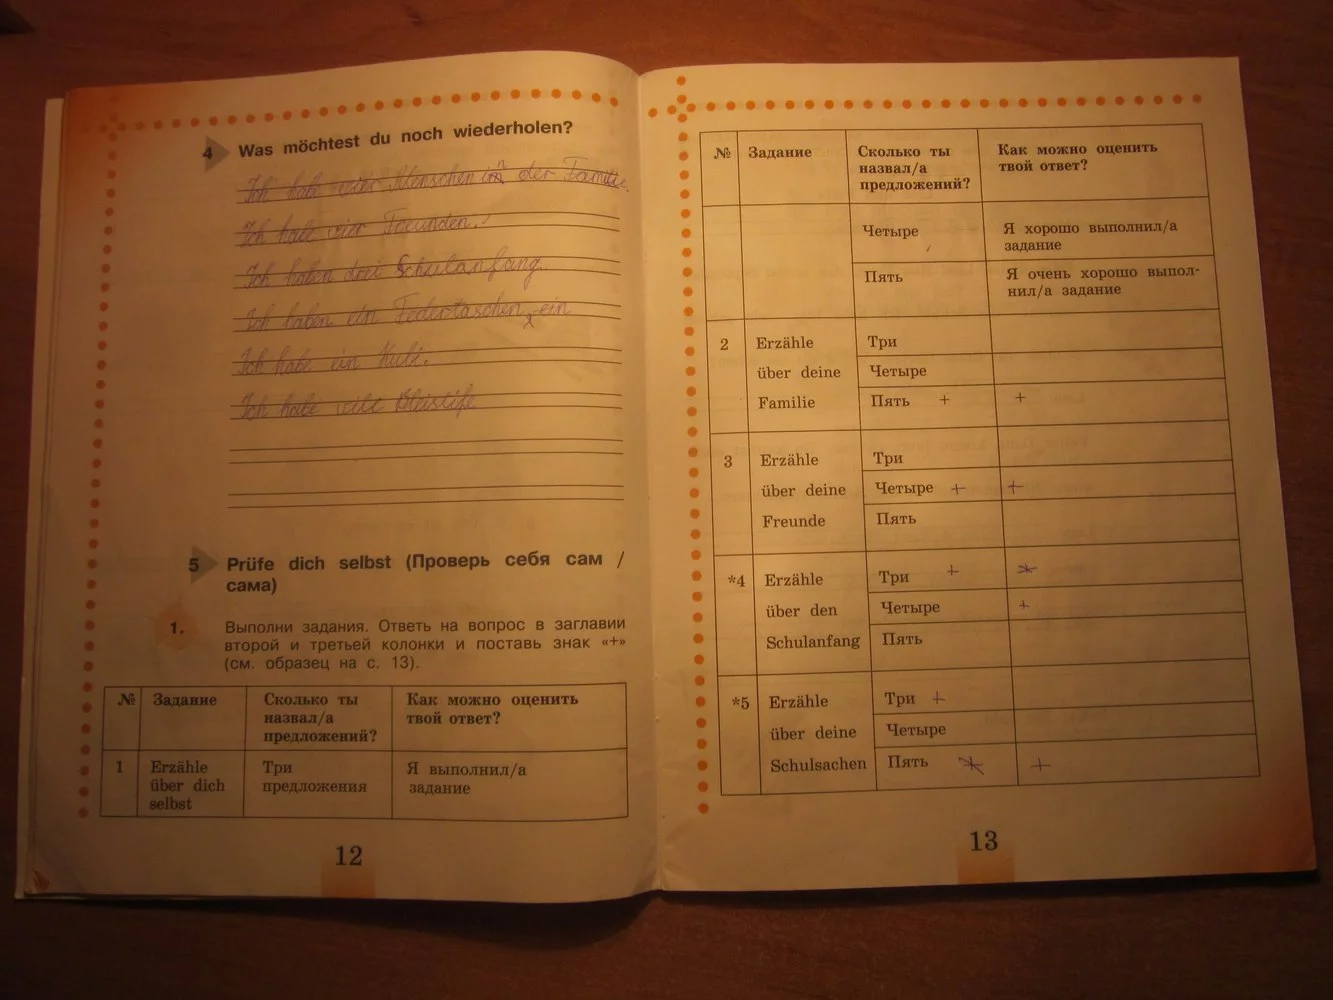 4 Was möchtest du noch wiederholen?
Ich habe vier Menschen in der Familie.
Ich habe vier Freunden.
Ich haben drei Schulanfang.
Ich haben ein Federtaschen ein
Ich habe ein Kuli.
Ich habe
5 Prüfe dich selbst (Проверь себя сам /
сама)
1. Выполни задания. Ответь на вопрос в заглавии
второй и третьей колонки и поставь знак «+»
(см. образец на с. 13).
№ Задание Сколько ты назвал/а предложений? Как можно оценить твой ответ?
1 Erzähle über dich selbst Три предложения Я выполнил/а задание
12
№ Задание Сколько ты назвал/а предложений? Как можно оценить твой ответ?
Четыре Я хорошо выполнил/а задание
Пять Я очень хорошо выпол-
нил/а задание
2 Erzähle Три
über deine Четыре
Familie Пять + +
3 Erzähle Три
über deine Четыре + +
Freunde Пять
*4 Erzähle Три +
über den Четыре +
Schulanfang Пять
*5 Erzähle Три +
über deine Четыре
Schulsachen Пять +
13